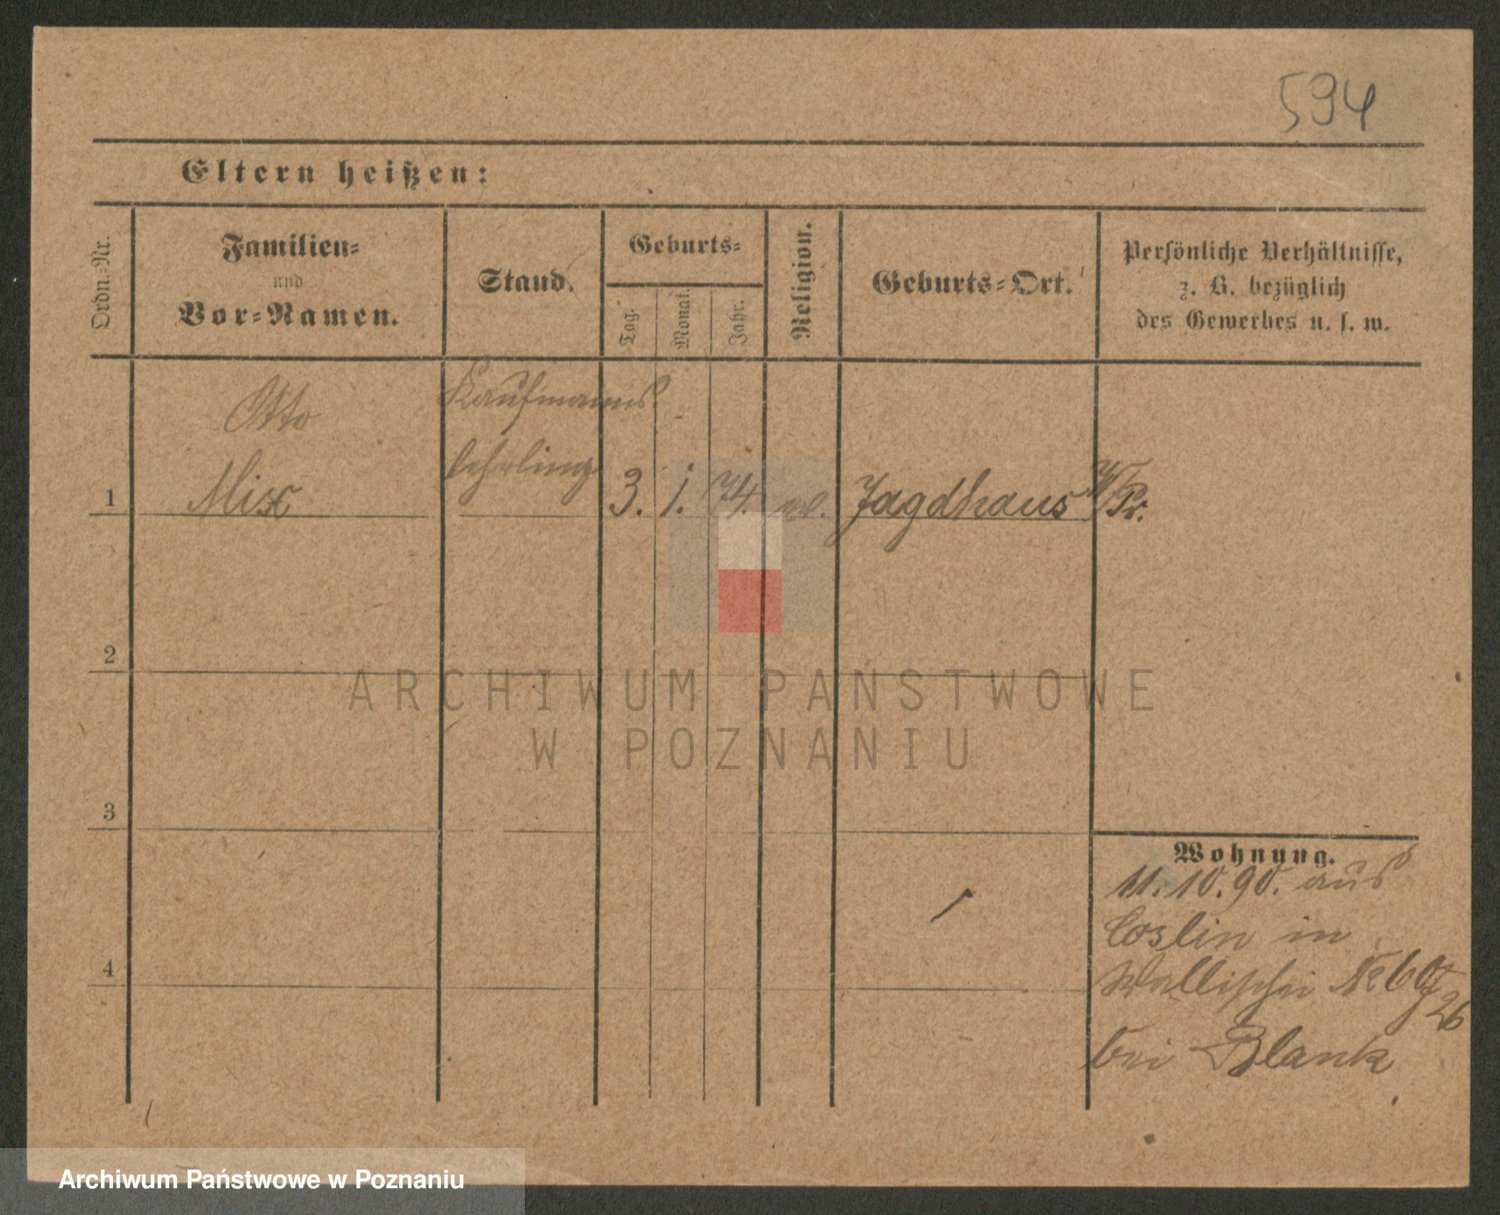 594
Eltern heißen:
Ordn.-Nr.
Familien-
und
Vor-Namen.
Stand.
Geburts-
Tag.
Monat.
Jahr.
Religion.
Geburts-Ort.
Persönliche Verhältnisse,
z. B. bezüglich
des Gewerbes u. s. w.
Otto
Mix
Kaufmanns
lehrling
1
3.
1.
74.
ev.
Jagdhaus W/Pr.
2
3
4
Wohnung.
11.10.90. aus
Coslin in
Wallischei №
bei Blank
ARCHIWUM PAŃSTWOWE
W POZNANIU
Archiwum Państwowe w Poznaniu